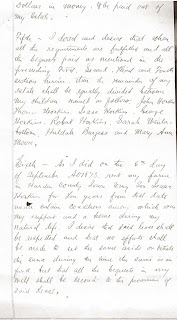 dollars in money. To be paid out of
my estate.
Fifth - I desire and decree that when
all the requirements are fulfilled and all
the bequests paid as mentioned in the
preceding First, Second, Third and Fourth
sections herein that the remainder of my
estate shall be equally divided between
my children named as follows: John
Thos. Hoskins, Isaac Hoskins, George
Hoskins, Robert Hoskins, Sarah
Huldah Burgess and Mary Ann
Moore.
Sixth - As I did on the 6th day
of September AD 1873 rent my farm
in Hardin County Iowa to my Son Isaac
Hoskins for ten years from that date
under certain conditions among which was
my support and a home during my
natural life. I desire that said lease shall
be respected and that no efforts shall
be made to set the same aside or
the same during the time the same is in
force but that all the bequests in my
will shall be second to the provisions of
said lease.